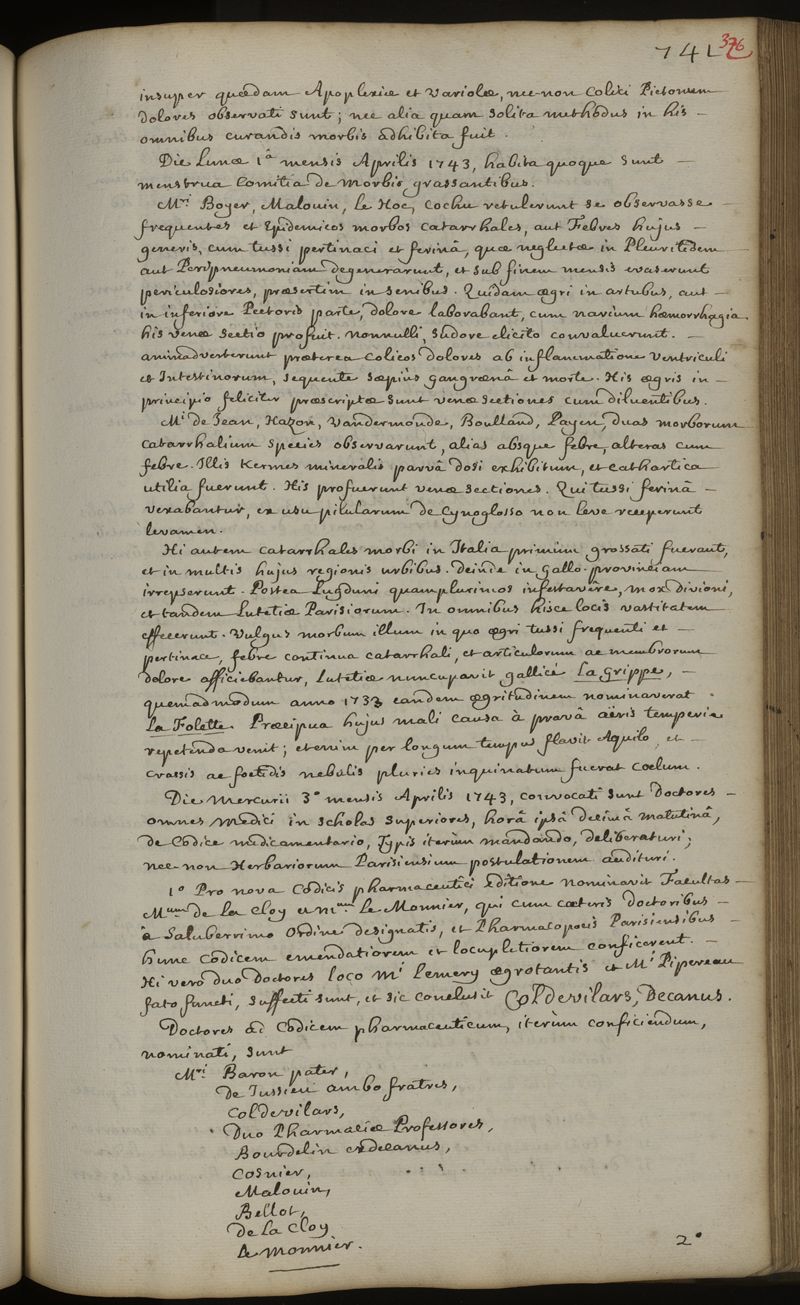 741 376
insuper quædam Apoplexiæ et Variolæ, nec-non Colici Pictonum
dolores observati sunt; nec alia quam solita methodus in his
omnibus curandis morbis adhibita fuit.
Die Lunæ 1â mensis Aprilis 1743, habita quoque sunt
menstrua Comitia de Morbis grassantibus.
Mri Boyer, Malouin, Le Hoc, Cochu retulerunt se observasse
frequentes et Epidemicos morbos catarrhales, aut Febres hujus
generis, cum tussi pertinaci et ferinâ, quæ neglectæ in Pleuritidem
aut Peripneumoniam degenerarunt, et sub finem mensis evaserunt
periculosiores, præsertim in senibus. Quidam ægri in artubus, aut
in inferiore Pectoris parte, dolore laborabant, cum narium hæmorrhagia.
his venæ Sectio profuit. nonnulli, Sudore elicito convaluerunt.
animadverterunt præterea Colicos dolores ab inflammatione Ventriculi
et Intestinorum, sequente sæpiùs gangrænâ et morte. His ægris in
principio feliciter præscriptæ sunt venæ Sectiones cum diluentibus.
Mri de Jean, Hazon, Vandermonde, Boulland, Payen, duas morborum
catarrhalium species observarunt, alias absque febre, alteras cum
febre. Illis Kermes mineralis parvâ dosi exhibitum, et Cathartica
utilia fuerunt. His profuerunt venæ sectiones. Qui tussi ferinâ
vexabantur, ex usu pilularum de Cynoglosso non leve receperunt
levamen.
Hi autem catarrhales morbi in Italia primùm grassati fuerant,
et in multis hujus regionis urbibus. Deinde in gallo-provinciam
irrepserunt. Postea Lugduni quamplurimos infestavêre, mox divioni,
et tandem Lutetiæ Parisiorum. In omnibus hisce locis vastitatem
effecerunt. Vulgus morbum illum in quo ægri tussi frequenti et
pertinace, febre continua catarrhali, et articulorum ac membrorum
dolore afficiebantur, Lutetiæ nuncupavit gallicè La Grippe,
quemadmodum anno 1733 eandem ægritudinem nominaverat
La Folette. Præcipua hujus mali causa à pravâ aëris temperie
repetenda venit; etenim per longum tempus flavit Aquilo, et
crassis ac foetidis nebulis pluries inquinatum fuerat coelum.
Die Mercurii 3ª mensis Aprilis 1743, convocati sunt Doctores
omnes Medici in Scholas Superiores, horâ ipsâ Decimâ matutinâ,
de Codice medicamentario, Typis iterùm mandando, deliberaturi;
nec-non Herbariorum Parisiensium postulationem audituri.
1º Pro nova Codicis pharmaceutici Editione nominavit Facultas
Mum de La Cloy et Mum Le Monnier, qui cum cæteris Doctoribus
à Saluberrimo Ordine designatis, et Pharmacopoeis Parisiensibus
hunc Codicem emendatiorem et locupletiorem conficerent.
Hi verò duo Doctores loco Mi Lemery ægrotantis et Mi Pipereau
fato functi, suffecti sunt, et sic conclusit Col de vilars, Decanus.
Doctores ad Codicem pharmaceuticum, iterùm conficiendum,
nominati, sunt
Mri Baron pater,
De Jussieu ambo fratres,
Col de vilars,
Duo Pharmaciæ Professores,
Bourdelin exdecanus,
Cosnier,
Malouin,
Bellot,
De La Cloy
Le Monnier.
2º